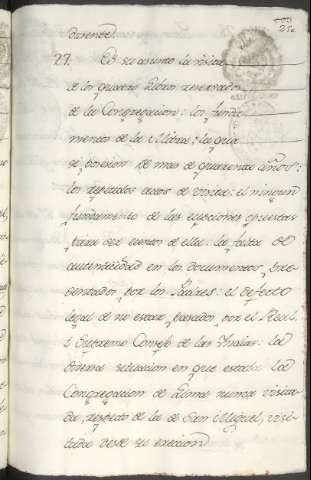 25
27. Es su asunto la visita
de los quatro Libros reservados
de la Congregacion: los funda
mentos de la Mitra: la qua
si posesion de mas de quarenta años:
los repetidos autos de visita: el ningun
fundamento de las
para ser exentos de ella: la falta de
autenticidad en los documentos pre
sentados por los Padres: el defecto
legal de no estar pasados por el Real,
i Supremo Consejo de las Yndias: la
diversa situacion en que estaba la
Congregacion de Lima nunca visita
da, respecto de la de San Miguel, visi
tada desde su ereccion